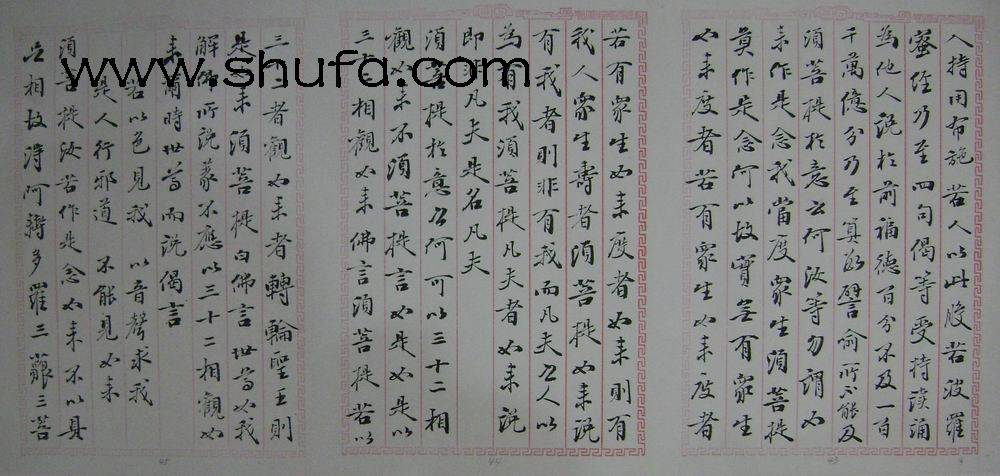 人持用布施若人以此般若波羅
蜜經乃至四句偈等受持讀誦
為他人説於前福德百分不及一百
千萬億分乃至算數譬喻所不能及
須菩提於意云何汝等勿謂如
来作是念我當度衆生須菩提
莫作是念何以故實无有衆生
如来度者若有衆生如来度者
43
若有衆生如来度者如来則有
我人衆生壽者須菩提如来説
有我者則非有我而凡夫之人以
為有我須菩提凡夫者如来説
即非凡夫是名凡夫
須菩提於意云何可以三十二相
觀如来不須菩提言如是如是以
三十二相觀如来佛言須菩提若以
44
三十二相觀如来者轉輪聖王則
是如来須菩提白佛言世尊如我
解佛所説義不應以三十二相觀如
来爾時世尊而説偈言
若以色見我 以音聲求我
是人行邪道 不能見如来
須菩提汝若作是念如来不以具
足相故得阿耨多羅三藐三菩
45
www.shufa.com